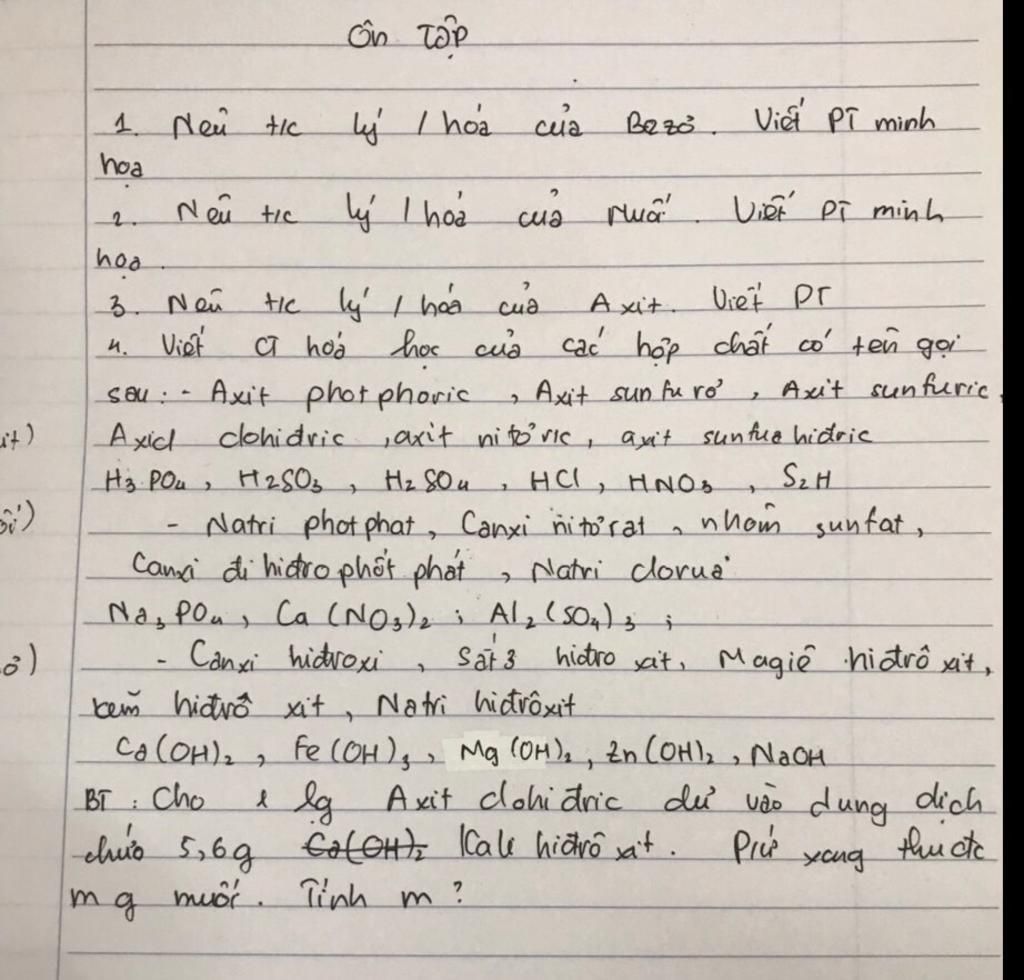 Ôn Tập
1. Nêu t/c lý / hóa của Bazơ. Viết PT minh
họa
2. Nêu t/c lý / hóa của muối. Viết PT minh
họa.
3. Nêu t/c lý / hóa của Axit. Viết PT
4. Viết CT hoá học của các hợp chất có tên gọi
sau: - Axit photphoric, Axit sunfurơ, Axit sunfuric,
it) Axicl clohiđric, axit nitơric, axit sunfua hiđric
H3PO4, H2SO3, H2SO4, HCl, HNO3, S2H
ối) - Natri photphat, Canxi nitơrat, nhôm sunfat,
Canxi đi hiđro phốt phát, Natri clorua
Na3PO4, Ca(NO3)2; Al2(SO4)3;
ơ) - Canxi hiđroxi, Sắt 3 hiđro xit, Magiê hiđrô xit,
kẽm hiđrô xit, Natri hiđrôxit
Ca(OH)2, Fe(OH)3, Mg(OH)2, Zn(OH)2, NaOH
BT: Cho lg Axit clohiđric dư vào dung dịch
chứa 5,6g Ca(OH)2 Kali hiđrô xit. Pứ xong thu đc
m g muối. Tính m?